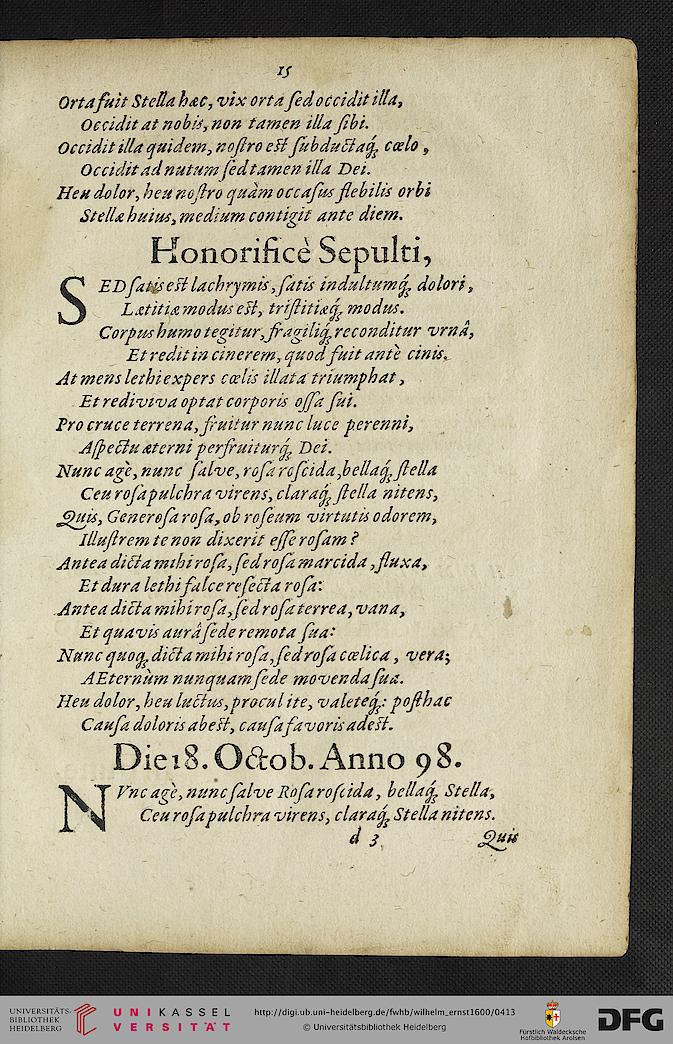 15
Orta fuit Stella hæc, vix orta ſed occidit illa,
Occidit at nobis, non tamen illa ſibi.
Occidit illa quidem, noſtro eſt ſubductaq́; cœlo,
Occidit ad nutum ſed tamen illa Dei.
Heu dolor, heu noſtro quàm occaſus flebilis orbi
Stellæ huius, medium contigit ante diem.
Honorificè Sepulti,
SED ſatis eſt lachrymis, ſatis indultumq́; dolori,
Lætitiæ modus eſt, triſtitiæq́; modus.
Corpus humo tegitur, fragiliq́; reconditur vrnâ,
Et redit in cinerem, quod fuit antè cinis.
At mens lethi expers cœlis illata triumphat,
Et rediviva optat corporis oſſa ſui.
Pro cruce terrena, fruitur nunc luce perenni,
Aſpectu æterni perfruiturq́; Dei.
Nunc agè, nunc ſalve, roſa roſcida, bellaq́; ſtella
Ceu roſa pulchra virens, claraq́; ſtella nitens,
Quis, Generoſa roſa, ob roſeum virtutis odorem,
Illuſtrem te non dixerit eſſe roſam?
Antea dicta mihi roſa, ſed roſa marcida, fluxa,
Et dura lethi falce reſecta roſa:
Antea dicta mihi roſa, ſed roſa terrea, vana,
Et quavis aurâ ſede remota ſua:
Nunc quoq; dicta mihi roſa, ſed roſa cœlica, vera;
AEternùm nunquam ſede movenda ſua.
Heu dolor, heu luctus, procul ite, valeteq́;: poſthac
Cauſa doloris abeſt, cauſa favoris adeſt.
Die 18. Octob. Anno 98.
NVnc agè, nunc ſalve Roſa roſcida, bellaq́; Stella,
Ceu roſa pulchra virens, claraq́; Stella nitens.
d 3 Quis
UNIVERSITÄTS-
BIBLIOTHEK
HEIDELBERG
UNIKASSEL
VERSITÄT
http://digi.ub.uni-heidelberg.de/fwhb/wilhelm_ernst1600/0413
© Universitätsbibliothek Heidelberg
Fürstlich Waldecksche
Hofbibliothek Arolsen
DFG